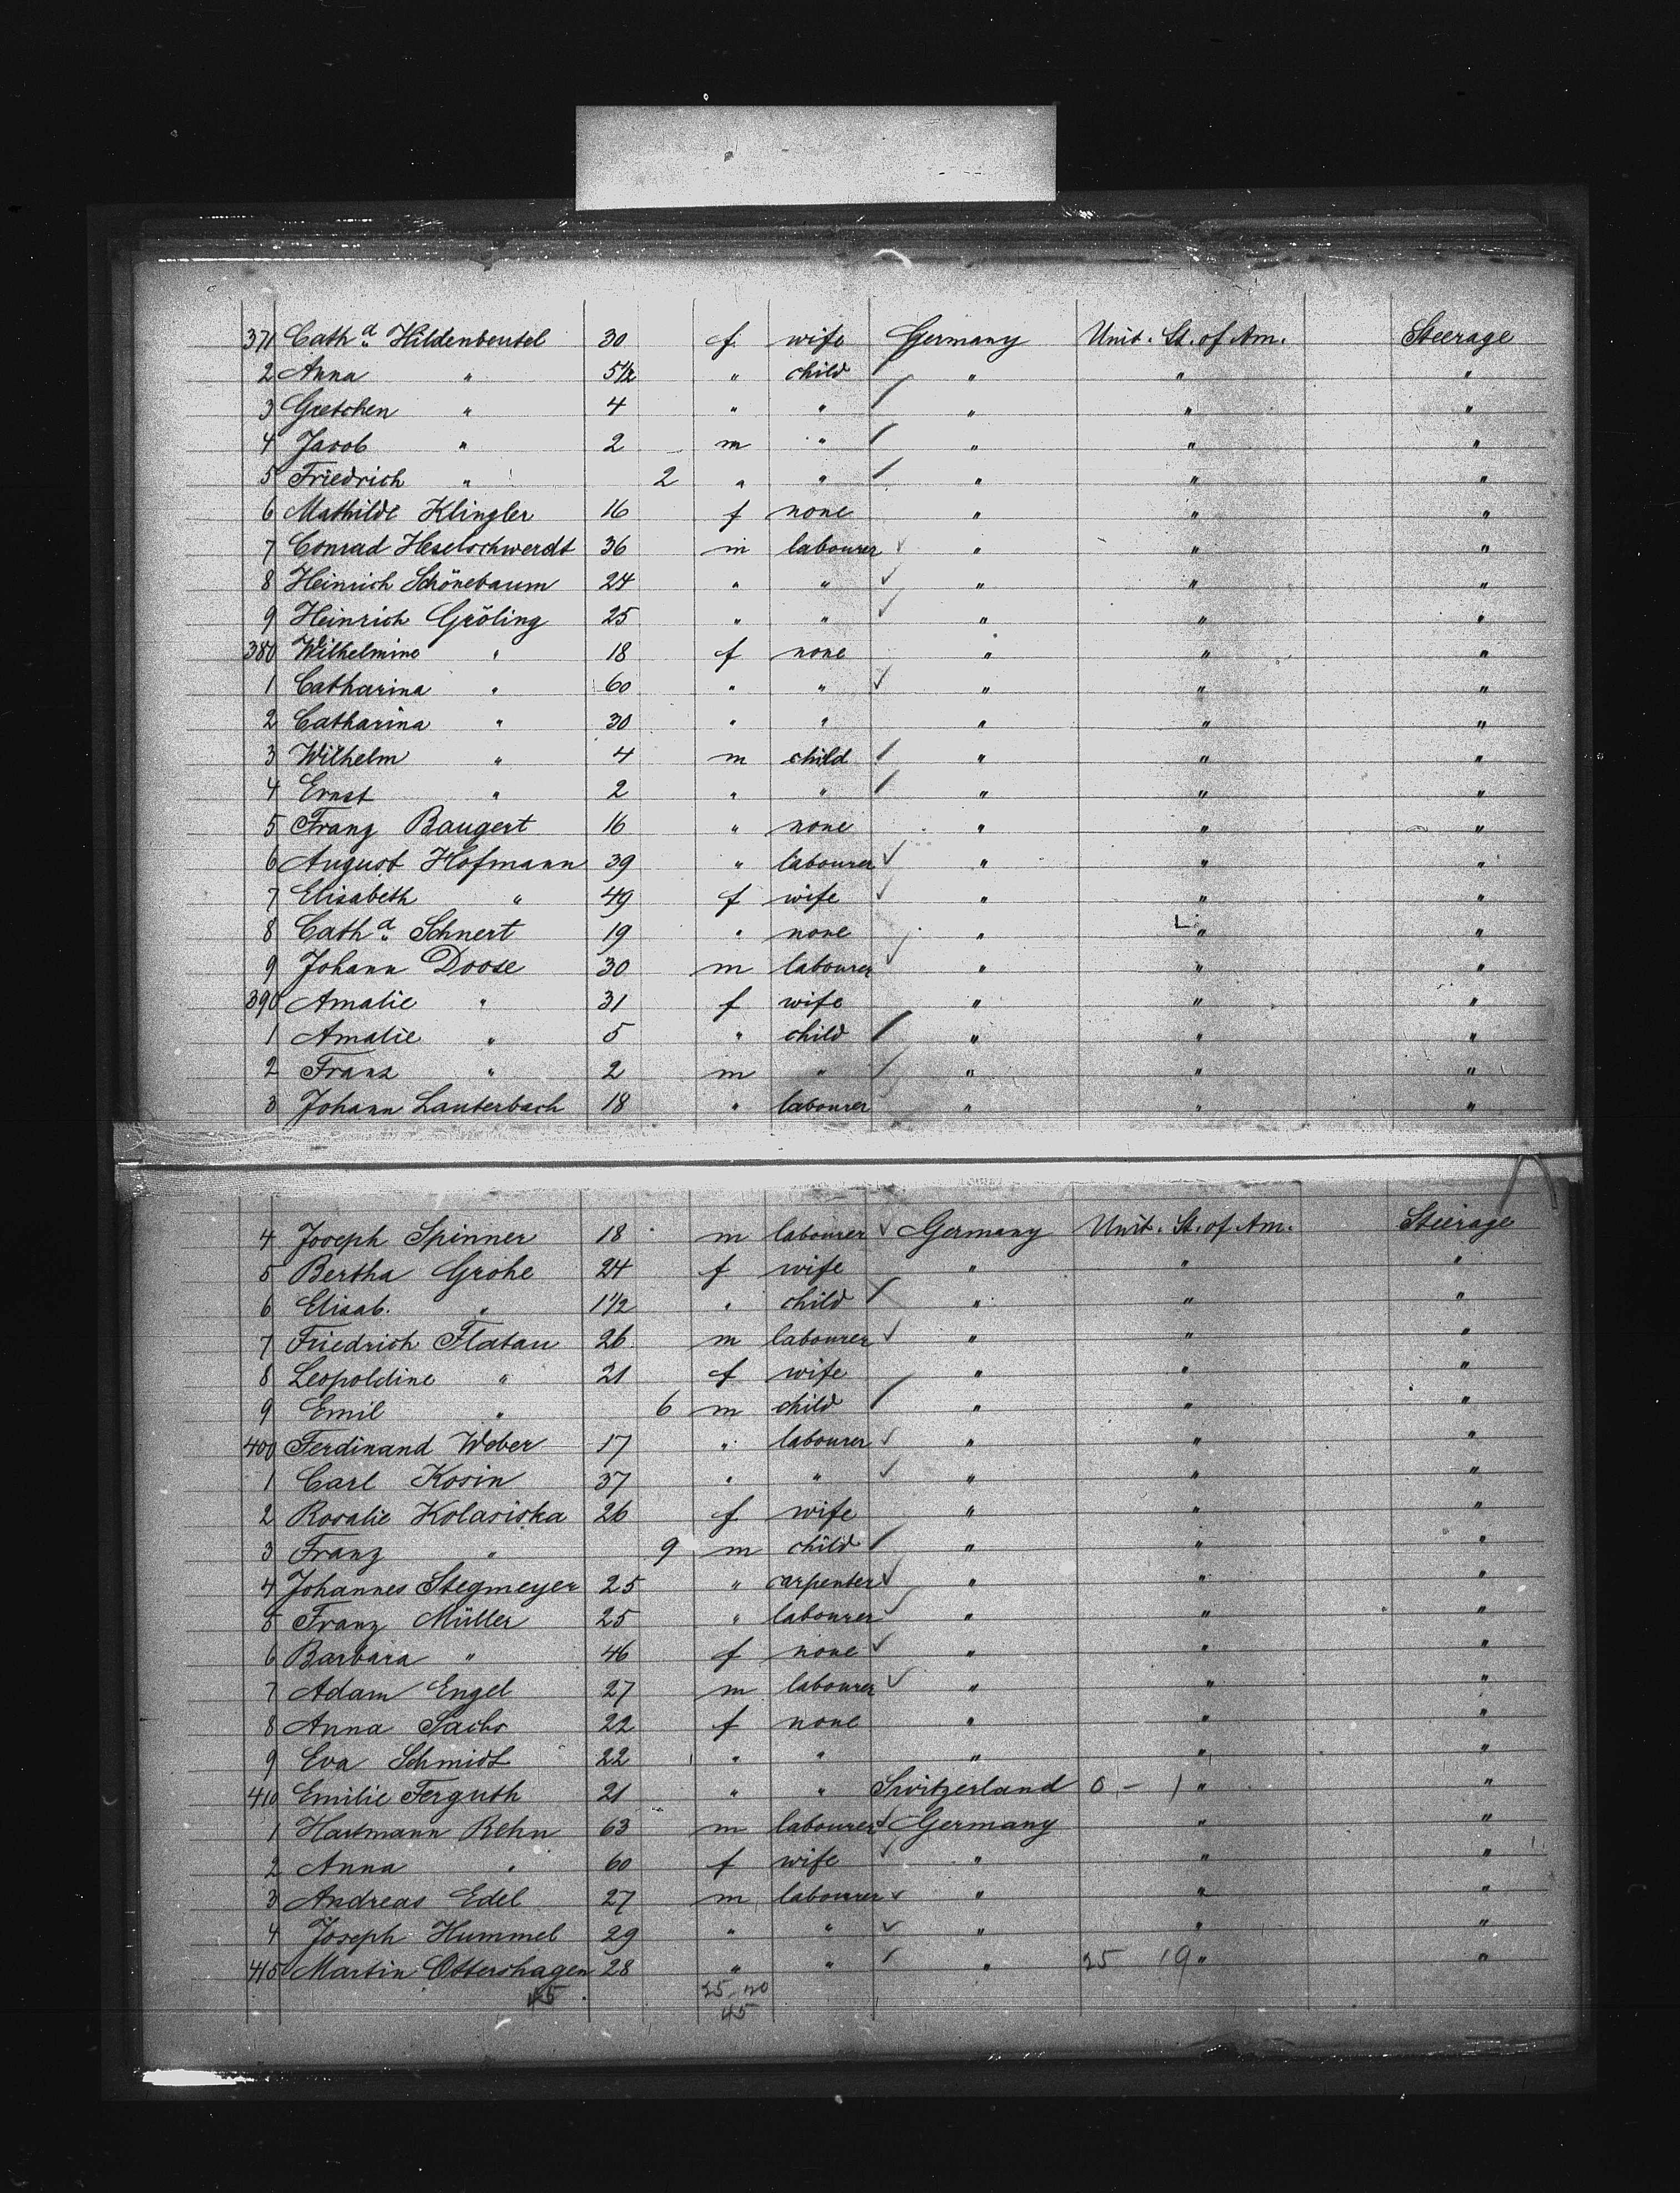 371 Catha. Hildenbeutel 30 f wife Germany Unit. St. of Am. Steerage
2 Anna " 5 1/2 " child " " "
3 Gretchen " 4 " " " " "
4 Jacob " 2 m " " " "
5 Friedrich " 2 " " " " "
6 Mathilde Klingler 16 f none " " "
7 Conrad Heselschwerdt 36 m labourer " " "
8 Heinrich Schönebaum 24 " " " " "
9 Heinrich Gröling 25 " " " " "
380 Wilhelmine " 18 f none " " "
1 Catharina " 60 " " " " "
2 Catharina " 30 " " " " "
3 Wilhelm " 4 m child " " "
4 Ernst " 2 " " " " "
5 Franz Baugert 16 " none " " "
6 August Hofmann 39 " labourer " " "
7 Elisabeth " 49 f wife " " "
8 Catha. Schnert 19 " none " " "
9 Johann Doose 30 m labourer " " "
390 Amalie " 31 f wife " " "
1 Amalie " 5 " child " " "
2 Franz " 2 m " " " "
3 Johann Lauterbach 18 " labourer " " "
4 Joseph Spinner 18 m labourer Germany Unit. St. of Am. Steerage
5 Bertha Grohe 24 f wife " " "
6 Elisab. " 1 1/2 " child " " "
7 Friedrich Flatau 26 m labourer " " "
8 Leopoldine " 21 f wife " " "
9 Emil " 6 m child " " "
400 Ferdinand Weber 17 " labourer " " "
1 Carl Kosin 37 " " " " "
2 Rosalie Kolasiska 26 f wife " " "
3 Franz " 9 m child " " "
4 Johannes Stegmeyer 25 " carpenter " " "
5 Franz Müller 25 " labourer " " "
6 Barbara " 46 f none " " "
7 Adam Engel 27 m labourer " " "
8 Anna Sachs 22 f none " " "
9 Eva Schmidt 22 " " " " "
410 Emilie Ferguth 21 " " Switzerland 0 - 1 " "
1 Hartmann Rehn 63 m labourer Germany " "
2 Anna " 60 f wife " " "
3 Andreas Edel 27 m labourer " " "
4 Joseph Hummel 29 " " " " "
415 Martin Ottershagen 28 " " " 25 19 " "
45 25 20
45